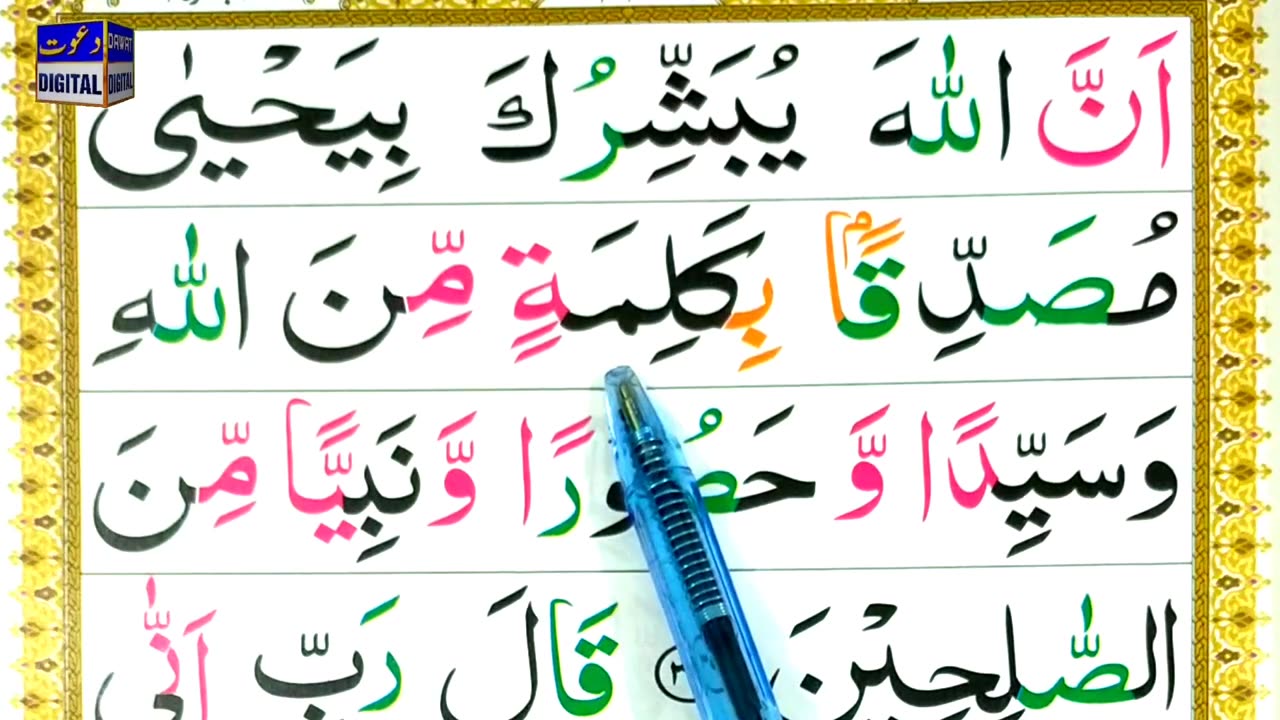 دعوت
DAWAT
DIGITAL DIGITAL
اَنَّ اللّٰهَ يُبَشِّرُكَ بِيَحْيٰى
مُصَدِّقًاۢ بِكَلِمَةٍ مِّنَ اللّٰهِ
وَسَيِّدًا وَّ حَصُورًا وَّ نَبِيًّا مِّنَ
الصّٰلِحِيْنَ قَالَ رَبِّ اَنّٰى